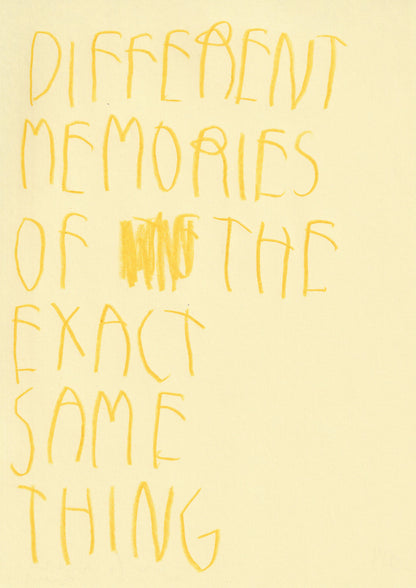 DIFFERENT
MEMORIES
OF THE
EXACT
SAME
THING